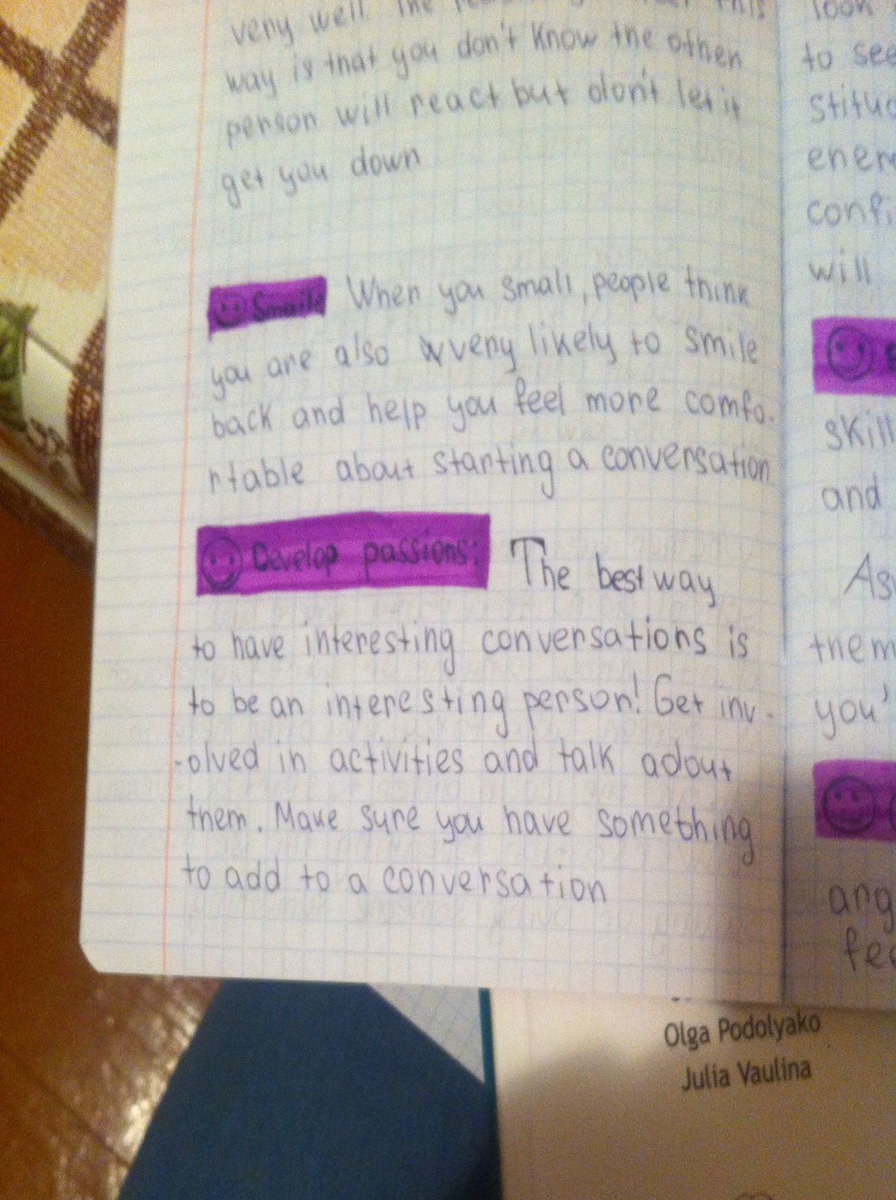 very well. The this
way is that you don't know the other
person will react but don't let it
get you down
Smaile When you small, people think
you are also very likely to smile
back and help you feel more comfo-
rtable about starting a conversation
Develop passions: The best way
to have interesting conversations is
to be an interesting person! Get inv-
-olved in activities and talk adout
them. Make sure you have something
to add to a conversation
look
to see
stitu
ener
confi
will
skill
and
As
them
you'
ang
fee
Olga Podolyako
Julia Vaulina